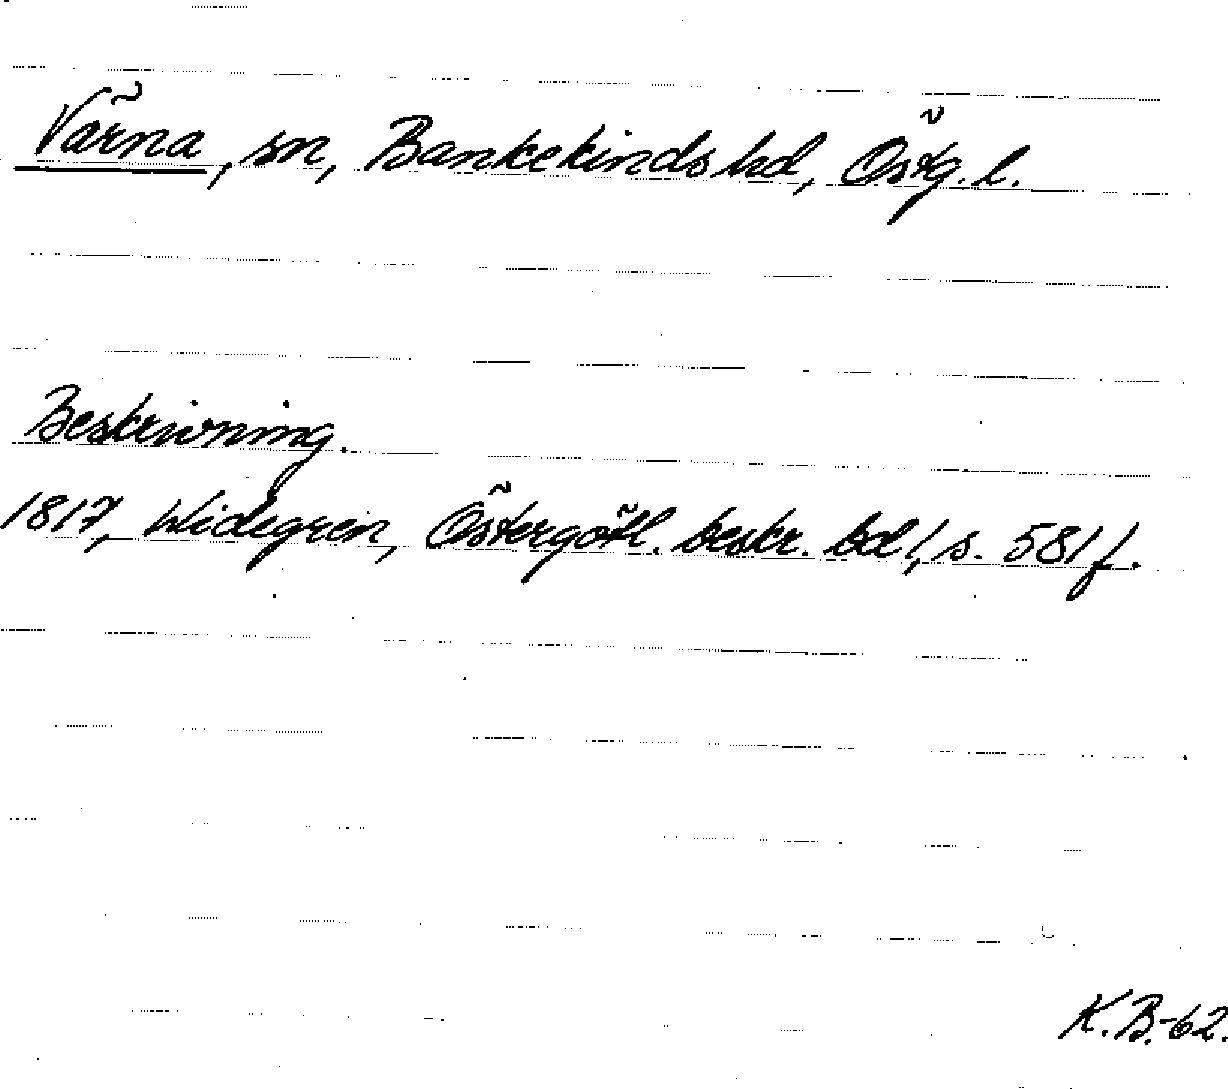 Värna, sn, Bankekinds hd, Östg. l.
Beskrivning.
1817, Widegren, Östergötl. beskr. bd 1, s. 581 f.
K.B.-62.